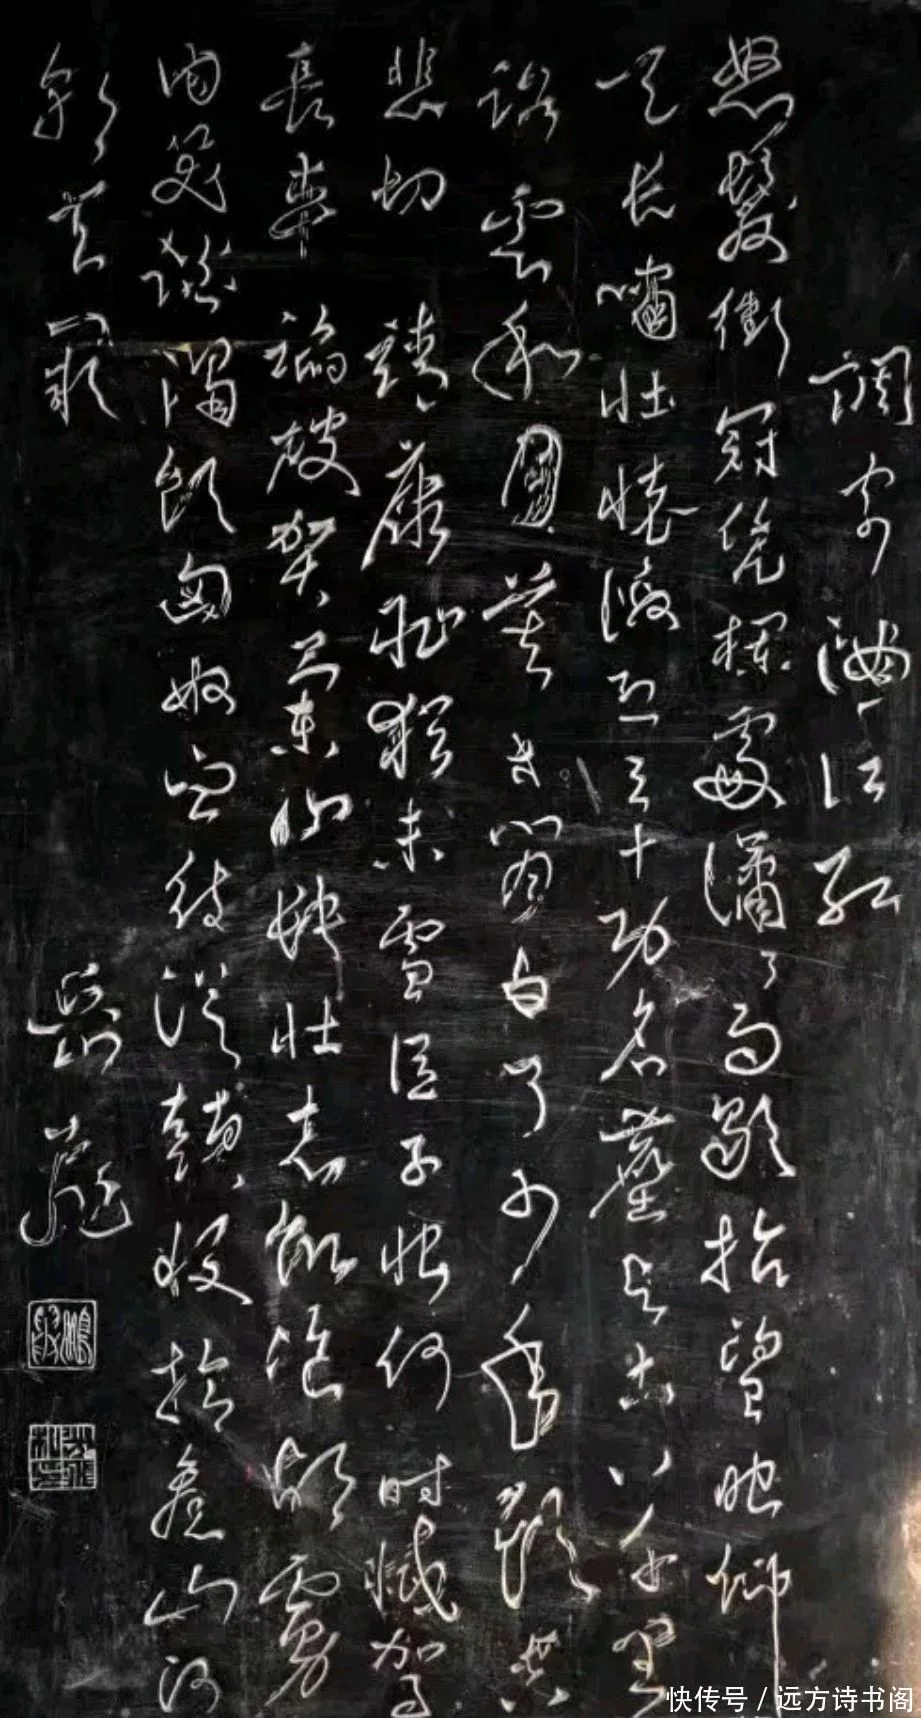 調寄滿江紅
怒髮衝冠凭欄處瀟々雨歇抬望眼仰
天長嘯壯懷激烈三十功名塵與土八千里
路雲和月莫等閒白了少年頭空
悲切靖康恥猶未雪臣子恨何時滅駕
長車踏破賀蘭山缺壯志飢餐胡虜
肉笑談渴飲匈奴血待從頭收拾舊山河
朝天闕
岳飛
快传号 / 远方诗书阁